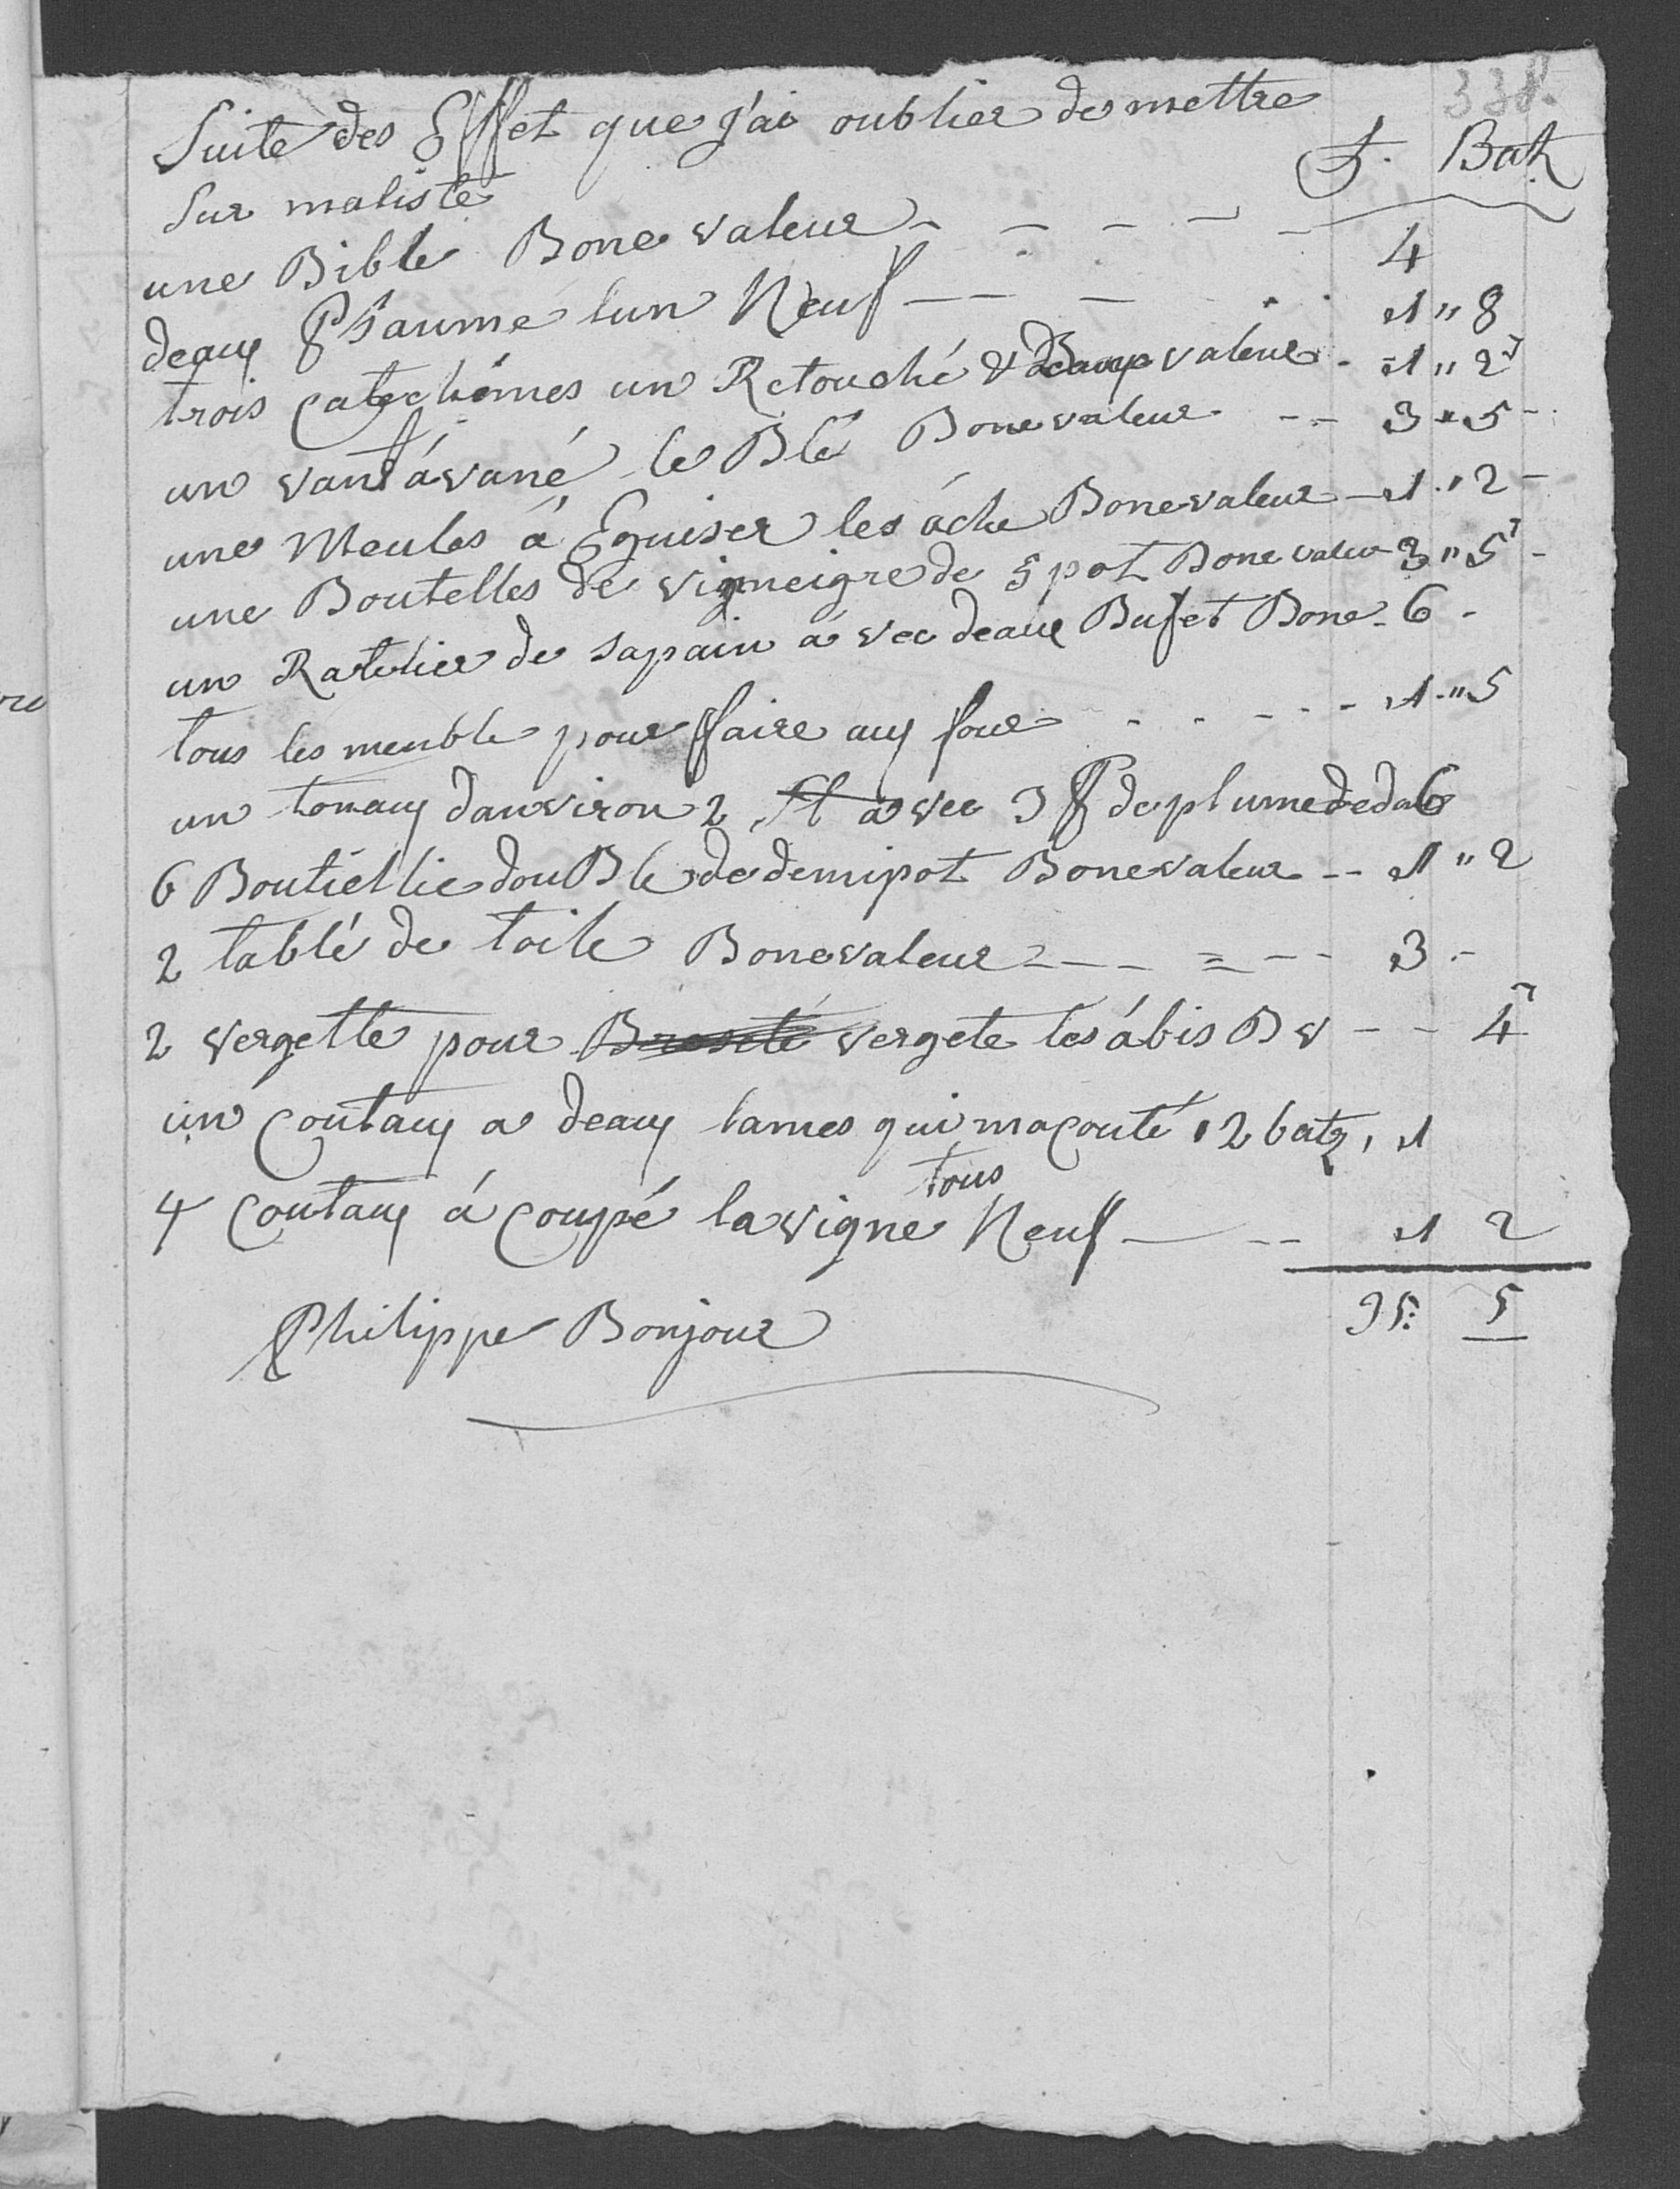 338.
Suite des Effet que J'ai oublier de mettre
Sur maliste
f. Batz
une Bible Bone valeur - - - - - 4
deaux Psaume lun Neuf - - - . . 1 " 8
trois Catechémes un Retouché & deaux valeur - 1 " 2
un vant á vané le Blé Bone valeur - - 3 " 5 -
une Meules á Eguiser les áche Bone valeur - 1 " 2 -
une Boutelles de vigneigre de 5 pot Bone valeur 3 " 5 -
un Ratelier de sapain á vec deaux Bufet Bone - 6 -
tous les meuble pour ffaire aux four - - - - - 1 - " 5
un tonaux danviron 2 avec 3 de plume deda 6
6 Boutiellie douBle de demipot Bone valeur - - 1 " 2
2 tablé de toile Bone valeur - - - = - - 3 -
2 vergette pour Brosété vergete les ábis B v - - 4
un Coutaux a deaux lames qui ma couté 12 batz, 1
4 Coutaux á Coupé la vigne tous Neuf - - - 1 2
35: 5
Philippe Bonjour